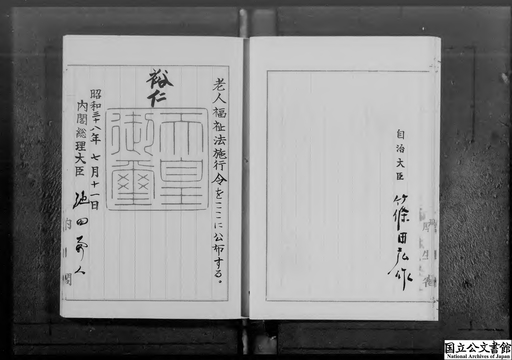 自治大臣
篠田弘作
老人福祉法施行令をここに公布する。
裕仁
天皇御璽
昭和三十八年七月十一日
内閣総理大臣 池田勇人
内閣
国立公文書館
National Archives of Japan